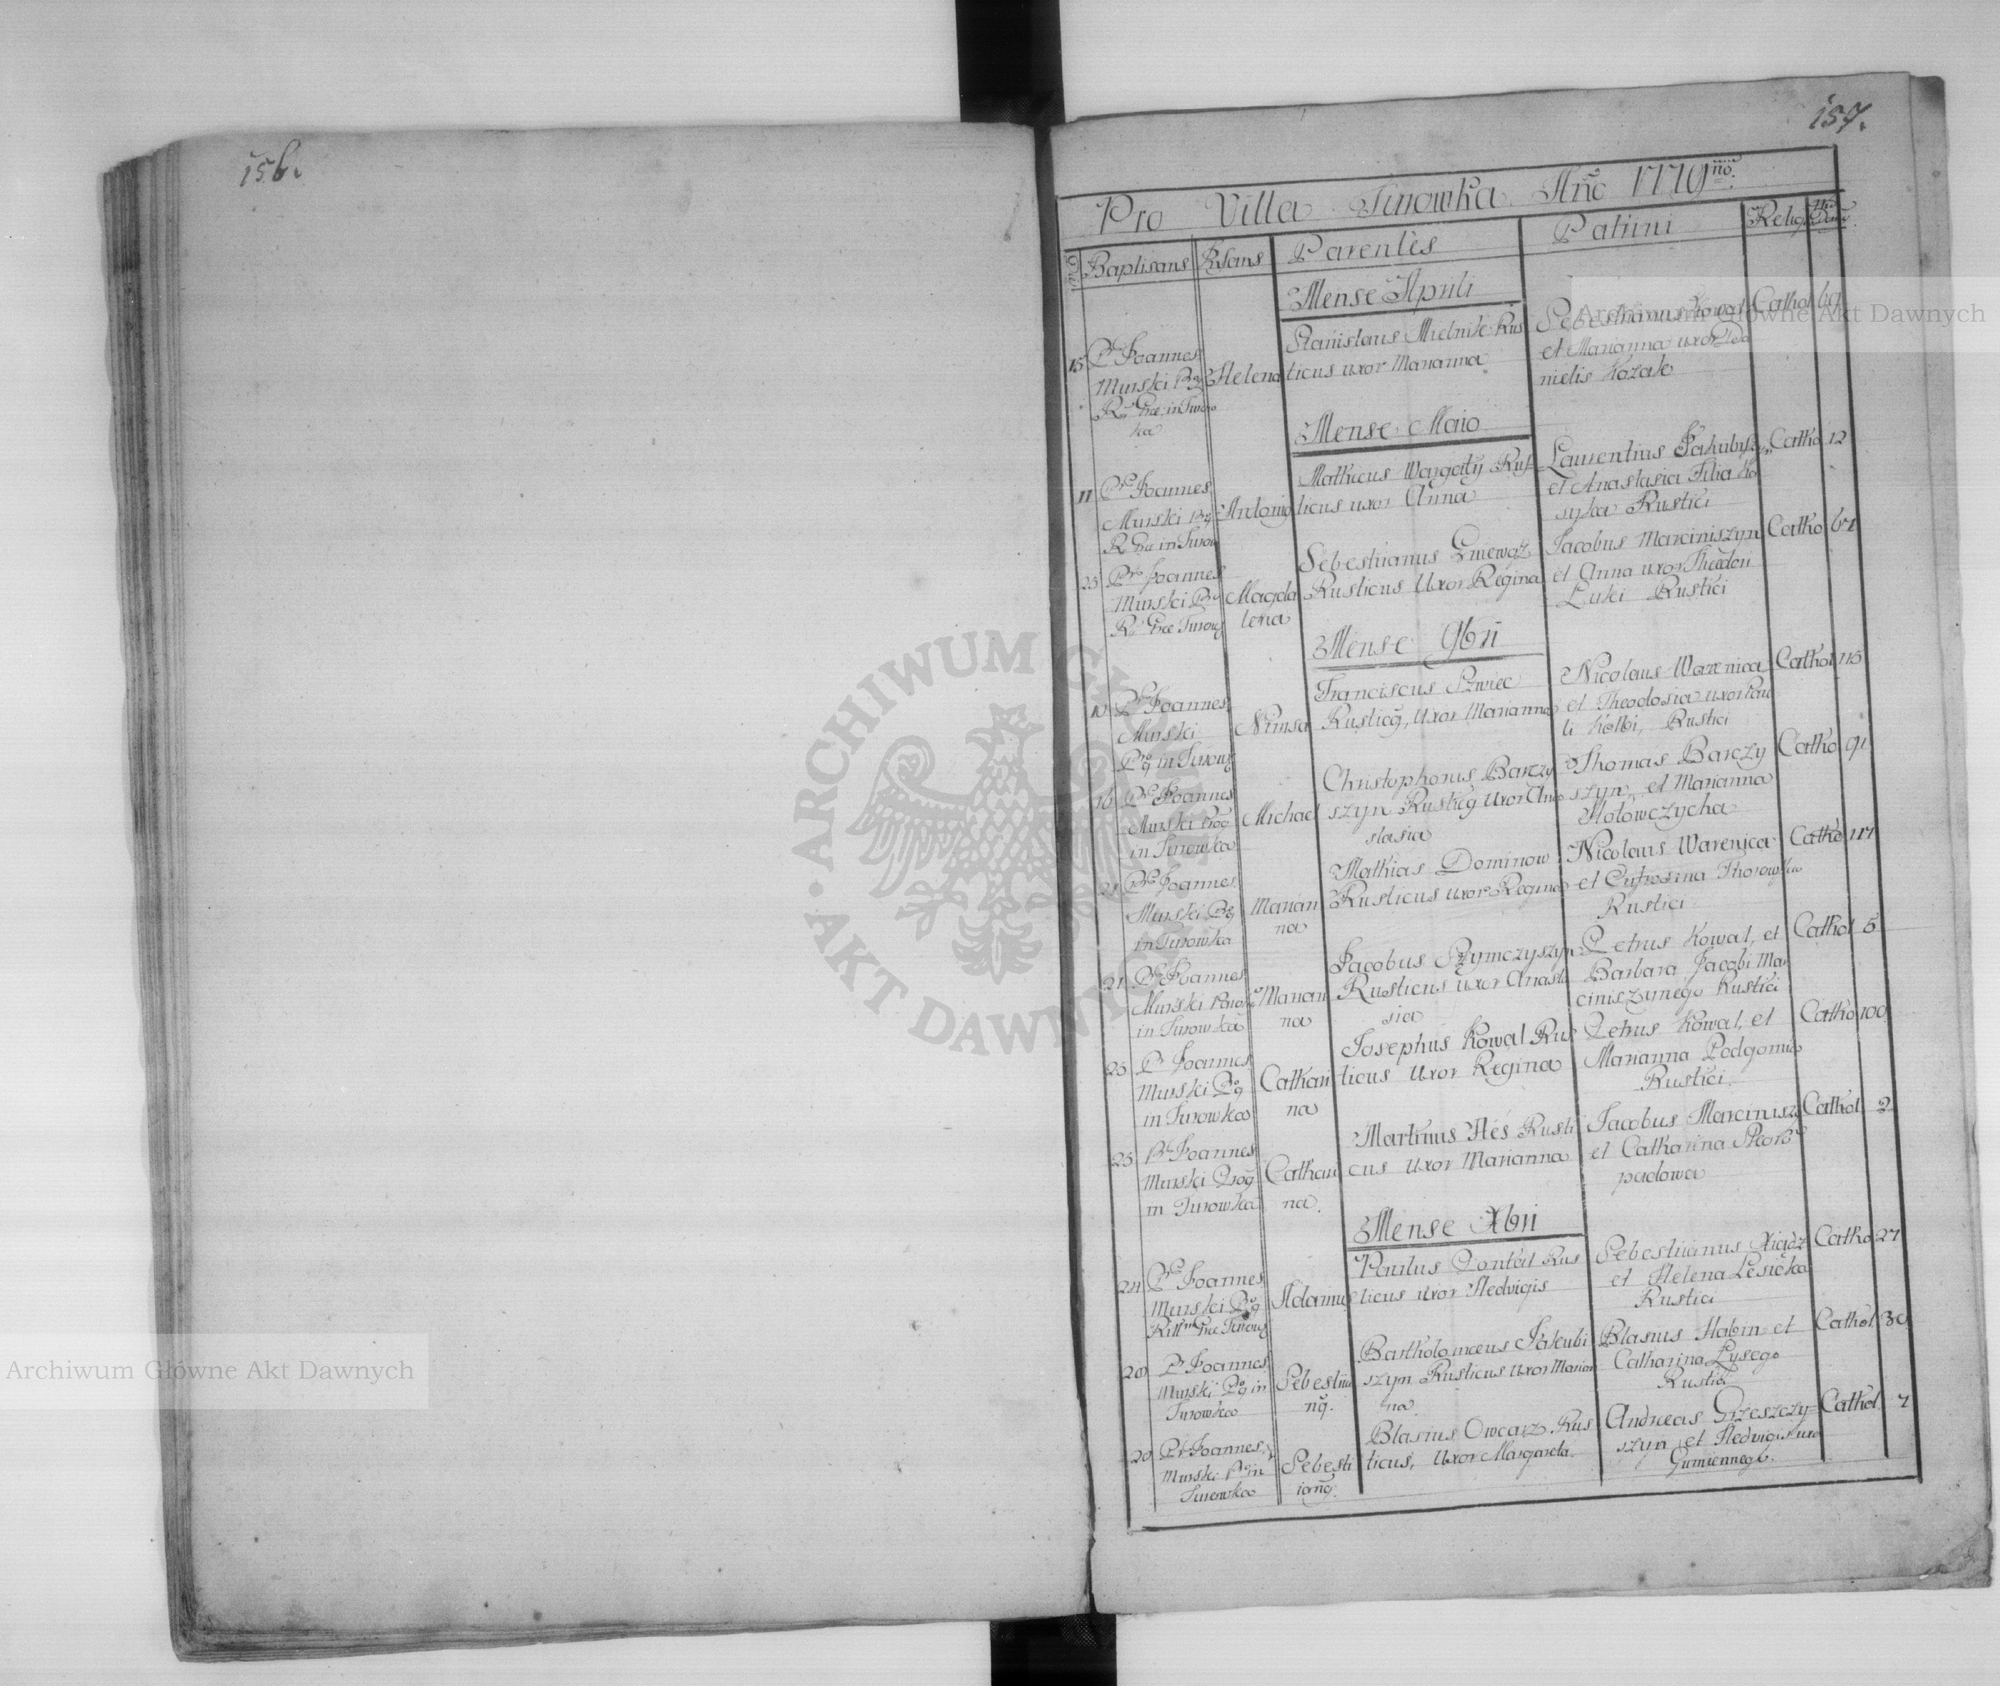 156.
157.
Pro Villa Turowka Año 1779no.
Baptisans Parentes Patrini Relig
Mense Aprili
15 Pr Joannes Murski R. Græ. in Turowka
Helena
Stanislaus Mielnik Rusticus uxor Marianna
Sebestianus Kowal et Marianna uxor Danielis Kozak
Cathol 69
Mense Maio
11 Pr Joannes Murski R. Græ in Turow
Mathicus Wargaty Rusticus uxor Anna
Laurentius Jakubysz et Anastasia Filia Rustici
Catho 12
25 Pr Joannes Murski R. Græ Turow
Magdalena
Sebestianus Gniewąz Rusticus Uxor Regina
Jacobus Marciniszyn et Anna uxor Theodori Luki Rustici
Catho 67
Mense 9brii
10 Pr Joannes Murski in Turow
Franciscus Szwiec Rusticg, Uxor Marianna
Nicolaus Warenica et Theodosia uxor Pauli Kolbi, Rustici
Cathol 115
16 Pr Joannes Murski in Turowka
Michael
Christophorus Barczyszyn Rusticg Uxor Anastasia
Thomas Barczyszyn, et Marianna Hołowczycha
Catho 91
21 Pr Joannes Murski in Turowka
Marianna
Mathias Dominow Rusticus uxor Regina
Nicolaus Warenica et Eufrosina Rustici
Catho 117
21 Pr Joannes Murski Paro in Turowka
Marianna
Jacobus Szymczyszyn Rusticus uxor Anastasia
Petrus Kowal, et Barbara Jacobi Marciniszynego Rustici
Cathol 5
25 Pr Joannes Murski in Turowka
Catharina
Josephus Kowal Rusticus Uxor Regina
Petrus Kowal, et Marianna Rustici
Catho 100
25 Pr Joannes Murski in Turowka
Catharina.
Martinus Rusticus Uxor Marianna
Jacobus Marcinisz et Catharina
Cathol 2
Mense Xbrii
24 Pr Joannes Murski Græ Turow
Adamus
Paulus Rusticus uxor Hedvigis
Sebestianus et Helena Lesicka Rustici
Catho 27
Pr Joannes Murski in Turowka
Sebestiang.
Bartholomæus Jakubiszyn Rusticus Uxor Marianna.
Blasius Habin et Catharina Łysego Rustici
Cathol
Pr Joannes Murski in Turowka
Sebestiang.
Blasius Owcarz Rusticus, Uxor Margareta.
Andreas Grzeszczyszyn et Hedvigis uxo Gumiennego.
Cathol. 7
Archiwum Główne Akt Dawnych
Archiwum Główne Akt Dawnych
ARCHIWUM GŁÓWNE AKT DAWNYCH